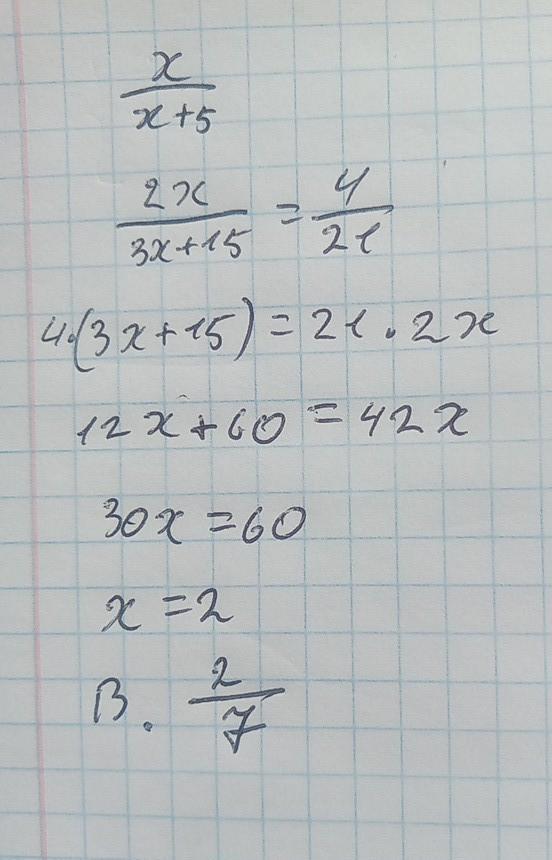 x/(x+5)
2x/(3x+15) = 4/21
4·(3x+15) = 21·2x
12x+60 = 42x
30x = 60
x = 2
В. 2/7